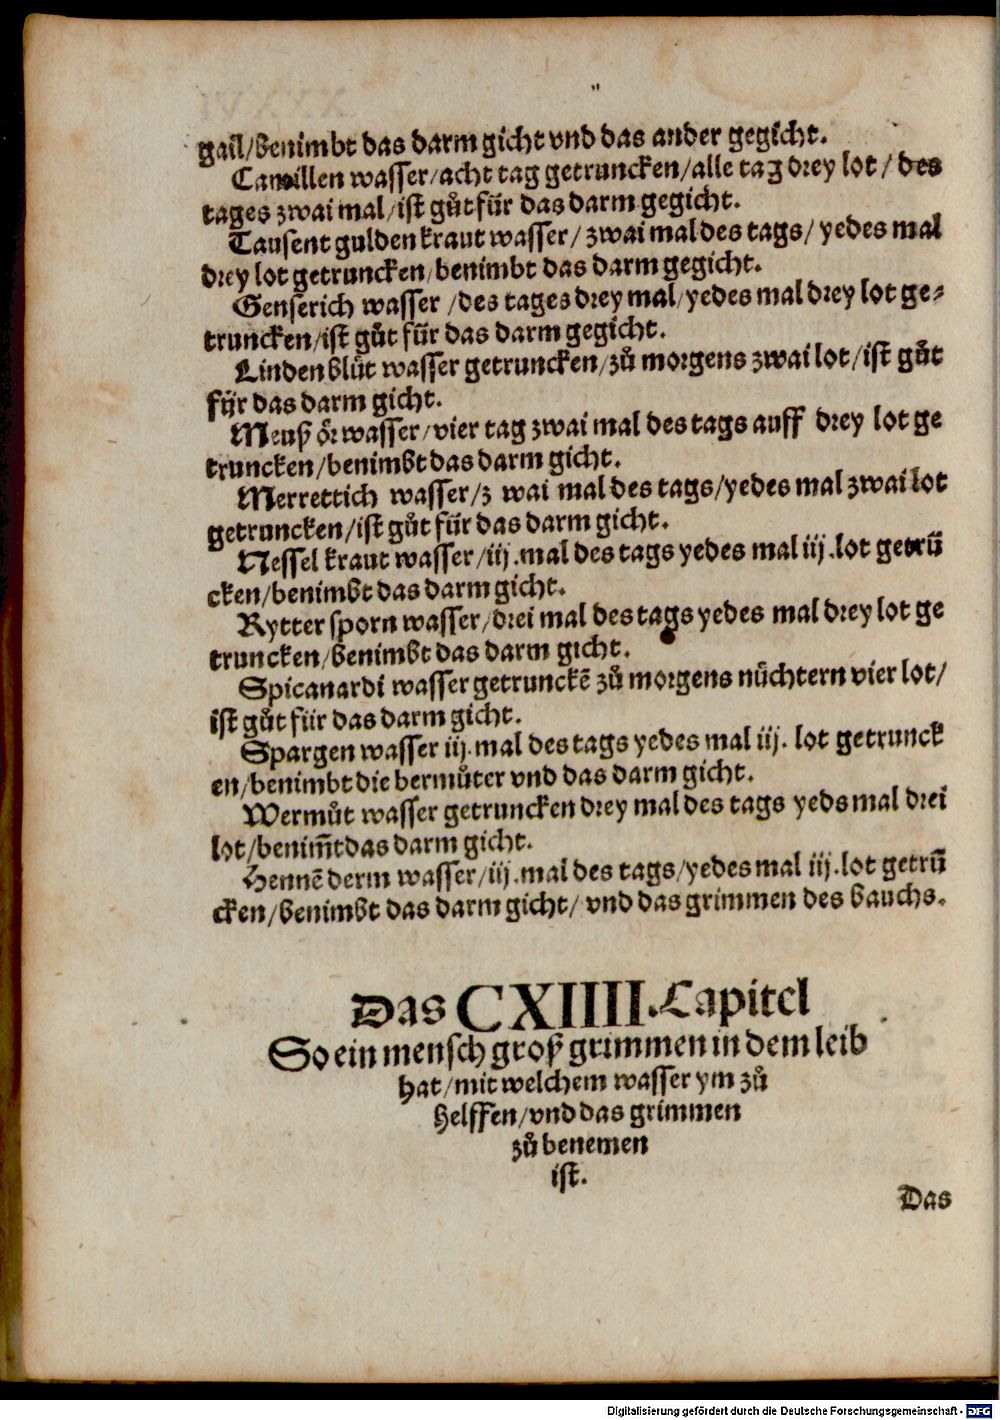 gail/benimbt das darm gicht vnd das ander gegicht.
Camillen wasser/acht tag getruncken/alle tag drey lot/ des
tages zwai mal/ist gůt für das darm gegicht.
Tausent gulden kraut wasser/ zwai mal des tags/ yedes mal
drey lot getruncken/benimbt das darm gegicht.
Genserich wasser /des tages drey mal/yedes mal drey lot ge-
truncken/ist gůt für das darm gegicht.
Linden blůt wasser getruncken/zů morgens zwai lot/ist gůt
für das darm gicht.
Meuß ör wasser/vier tag zwai mal des tags auff drey lot ge
truncken/benimbt das darm gicht.
Merrettich wasser/z wai mal des tags/yedes mal zwai lot
getruncken/ist gůt für das darm gicht.
Nessel kraut wasser/iij.mal des tags yedes mal iij.lot getrū
cken/benimbt das darm gicht.
Rytter sporn wasser/drei mal des tags yedes mal drey lot ge
truncken/benimbt das darm gicht.
Spicanardi wasser getrunckē zů morgens nüchtern vier lot/
ist gůt für das darm gicht.
Spargen wasser iij.mal des tags yedes mal iij. lot getrunck
en/benimbt die bermůter vnd das darm gicht.
Wermůt wasser getruncken drey mal des tags yeds mal drei
lot/benim̄t das darm gicht.
Hennē derm wasser/iij.mal des tags/yedes mal iij.lot getrū
cken/benimbt das darm gicht/ vnd das grimmen des bauchs.
Das CXIIII.Capitel
So ein mensch groß grimmen in dem leib
hat/mit welchem wasser ym zů
helffen/vnd das grimmen
zů benemen
ist.
Das
Digitalisierung gefördert durch die Deutsche Forschungsgemeinschaft - DFG